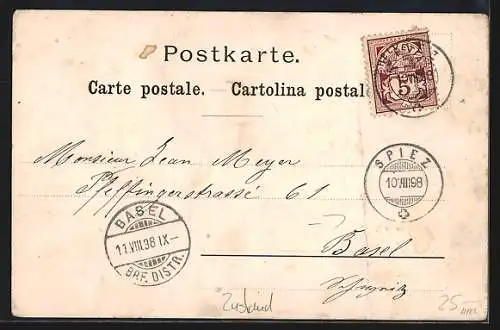 Postkarte.
Carte postale. Cartolina postale
5
SPIEZ
10.VIII.98
Monsieur Jean Meyer
Pfeffingerstrasse 61
BASEL
11.VIII.98 IX-
BRF. DISTR.
Basel
25.-